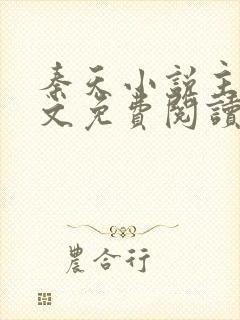 秦天小說主
文免費閱讀
農合行